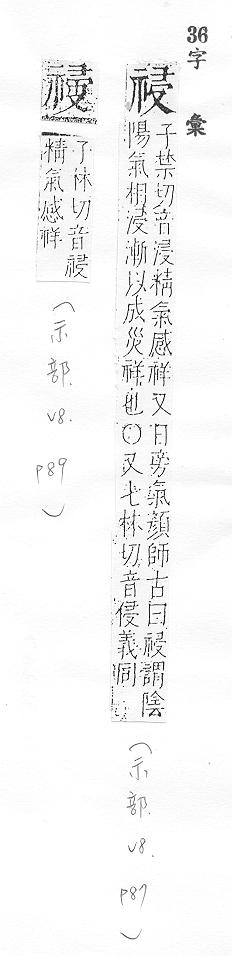 36字 彙
祲
子禁切音浸精氣感祥又日旁氣顏師古曰祲謂陰
陽氣相浸漸以成災祥也〇又七林切音侵義同
(示部. v8. p87)
祲
子林切音祲
精氣感祥
(示部. v8. p89)